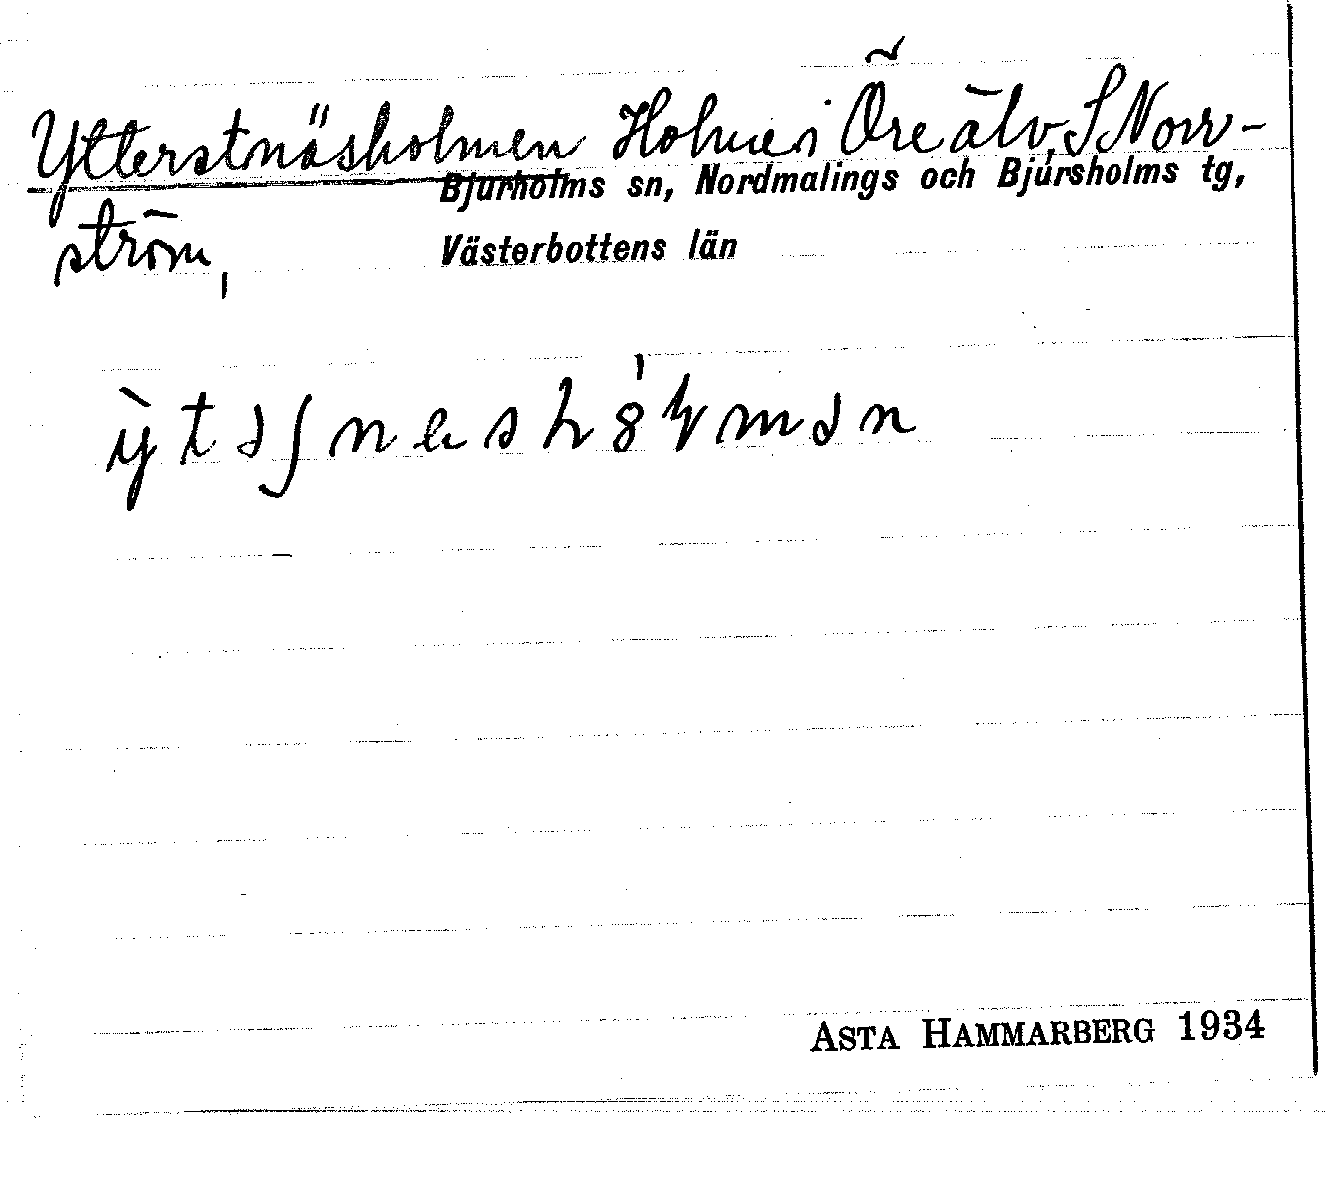 Ytterstnäsholmen Holme i Öre älv, S Norr-
Bjurholms sn, Nordmalings och Bjursholms tg,
ström,
Västerbottens län
ASTA HAMMARBERG 1934